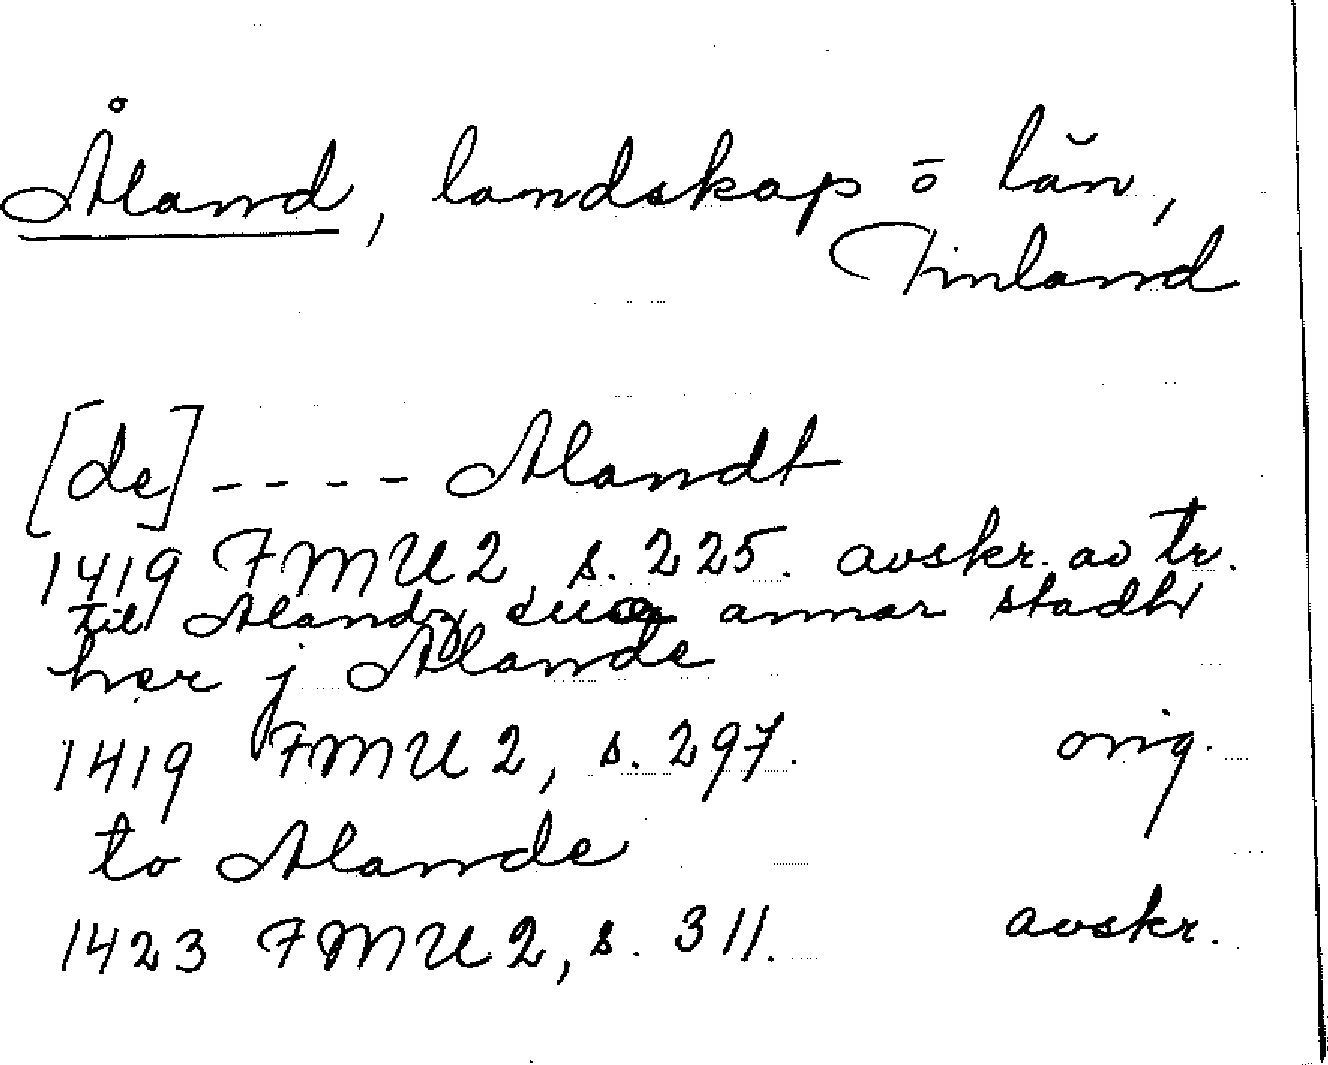 Åland, landskap ō län,
Finland
[de] - - - - Alandt
1419 FMU 2, s. 225. avskr. av tr.
til Alandz annar stadh
her j Alande
1419 FMU 2, s. 297. orig.
to Alande
1423 FMU 2, s. 311. avskr.